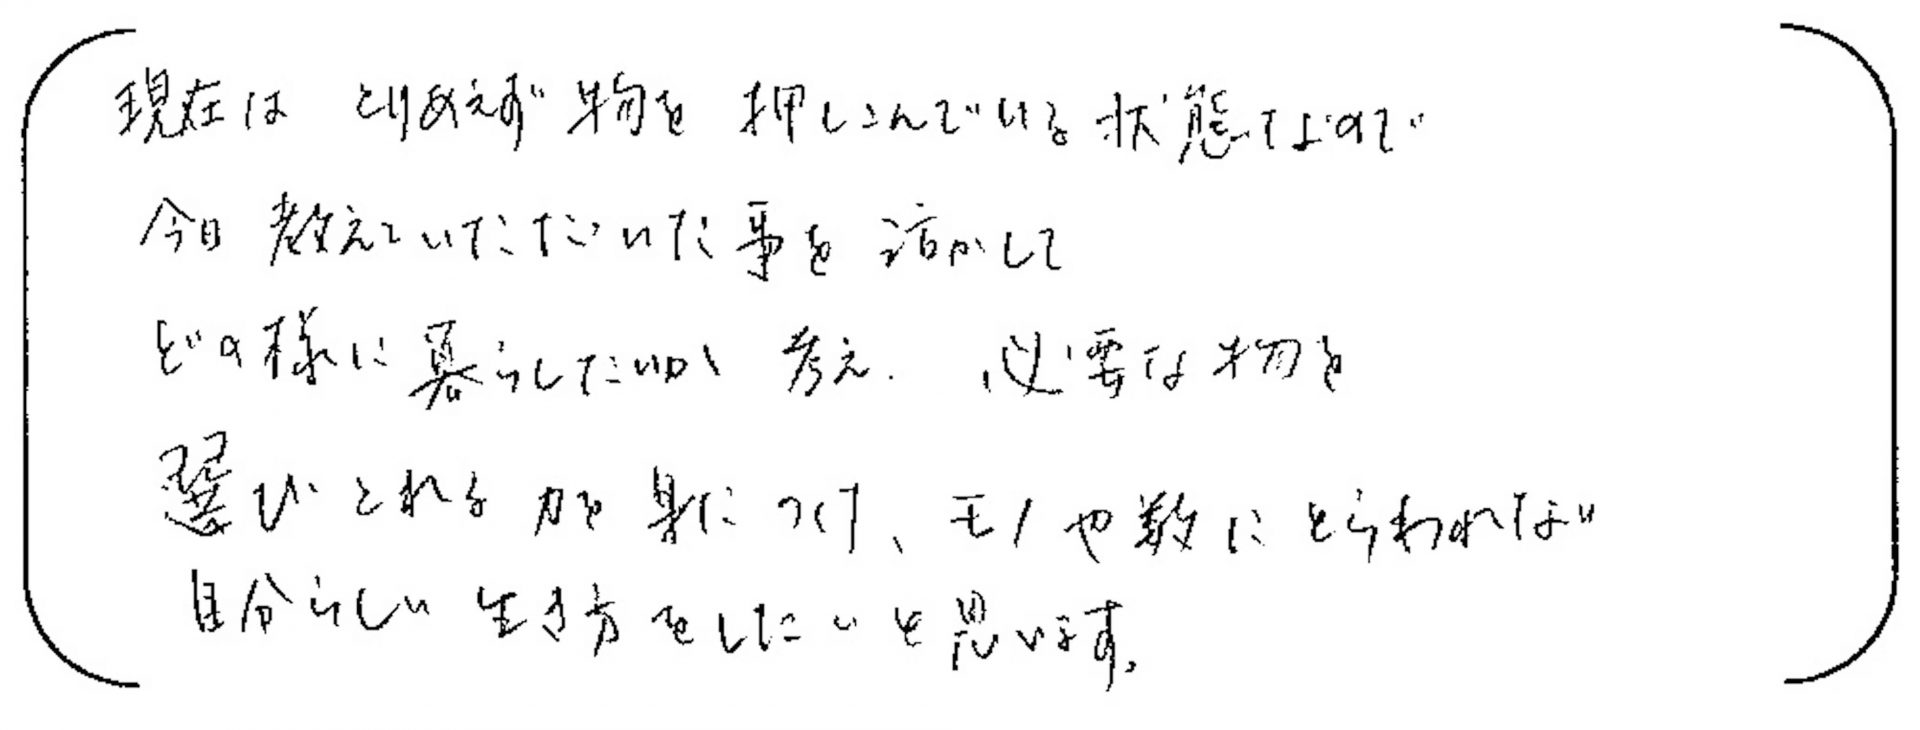 現在は とりあえず 物を 押しこんでいる 状態なので
今日 教えていただいた 事を 活かして
どの様に 暮らしたいか 考え、必要な物を
選びとれる 力を 身につけ、モノや数に とらわれない
自分らしい 生き方をしたいと思います。